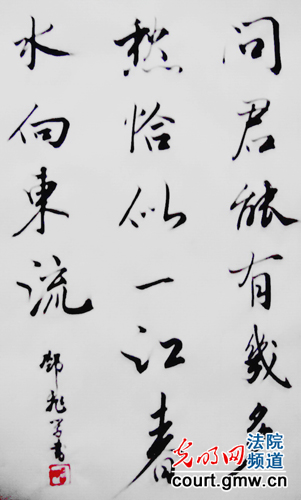 问君能有幾多
愁恰似一江春
水向東流
光明网 法院频道
court.gmw.cn